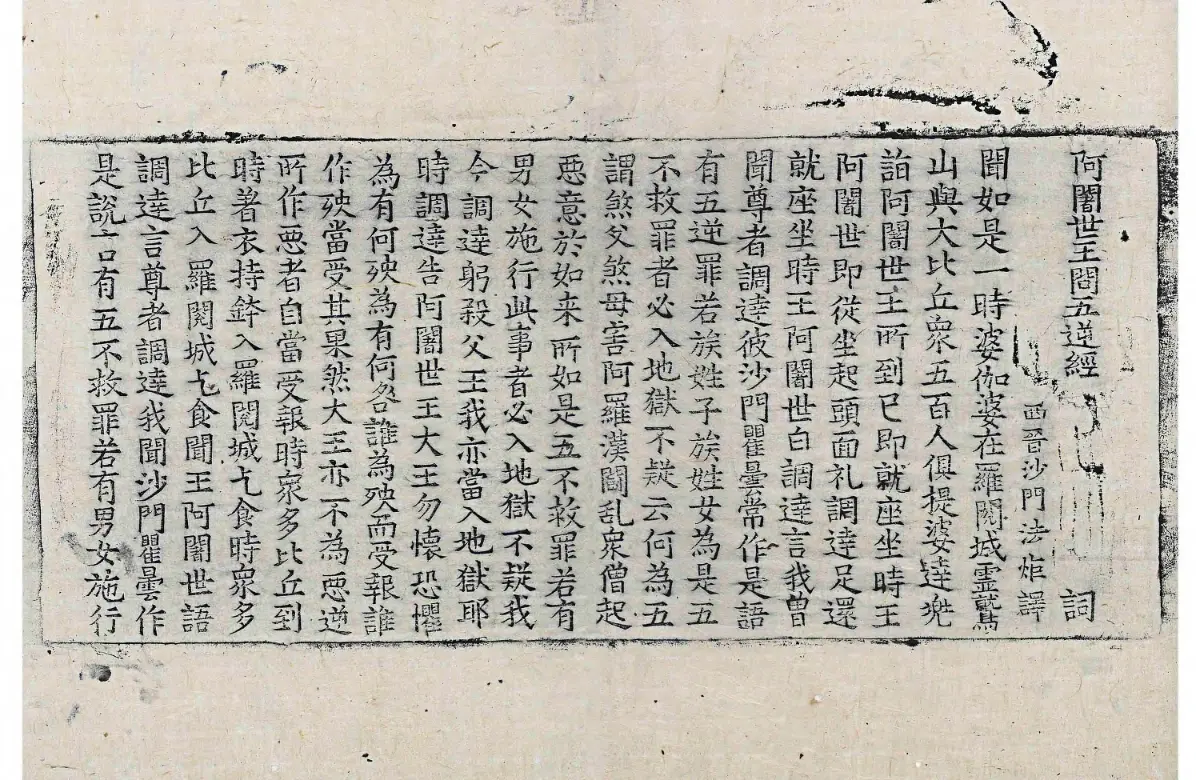 阿闍世王問五逆經 詞
西晉沙門法炬譯
聞如是一時婆伽婆在羅閱城霊鷲
山與大比丘衆五百人俱提婆達兠
詣阿闍世王所到已即就座坐時王
阿闍世即從坐起頭面礼調達足還
就座坐時王阿闍世白調達言我曽
聞尊者調達彼沙門瞿曇常作是語
有五逆罪若族姓子族姓女為是五
不救罪者必入地獄不疑云何為五
謂煞父煞母害阿羅漢鬪乱衆僧起
惡意於如来所如是五不救罪若有
男女施行此事者必入地獄不疑我
今調達躬殺父王我亦當入地獄耶
時調達告阿闍世王大王勿懷恐懼
為有何殃為有何咎誰為殃而受報誰
作殃當受其果然大王亦不為惡逆
所作惡者自當受報時衆多比丘到
時著衣持鉢入羅閱城乞食時衆多
比丘入羅閱城乞食聞王阿闍世語
調達言尊者調達我聞沙門瞿曇作
是說言有五不救罪若有男女施行